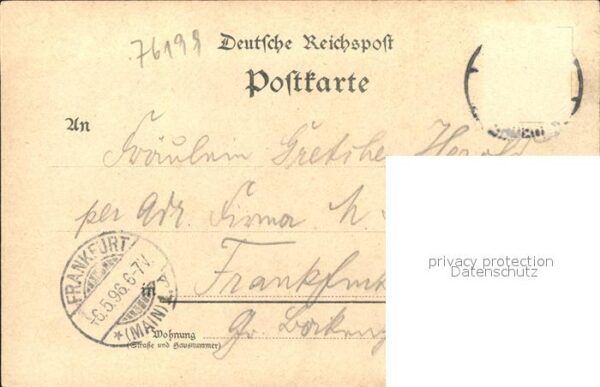 76199
Deutsche Reichspost
Postkarte
An
Fräulein Gretchen Herold
per Adr. Firma M
in Frankfurt
Wohnung
(Straße und Hausnummer)
Gr.
FRANKFURT
-6.5.96.6-7V.
*(MAIN)
privacy protection
Datenschutz